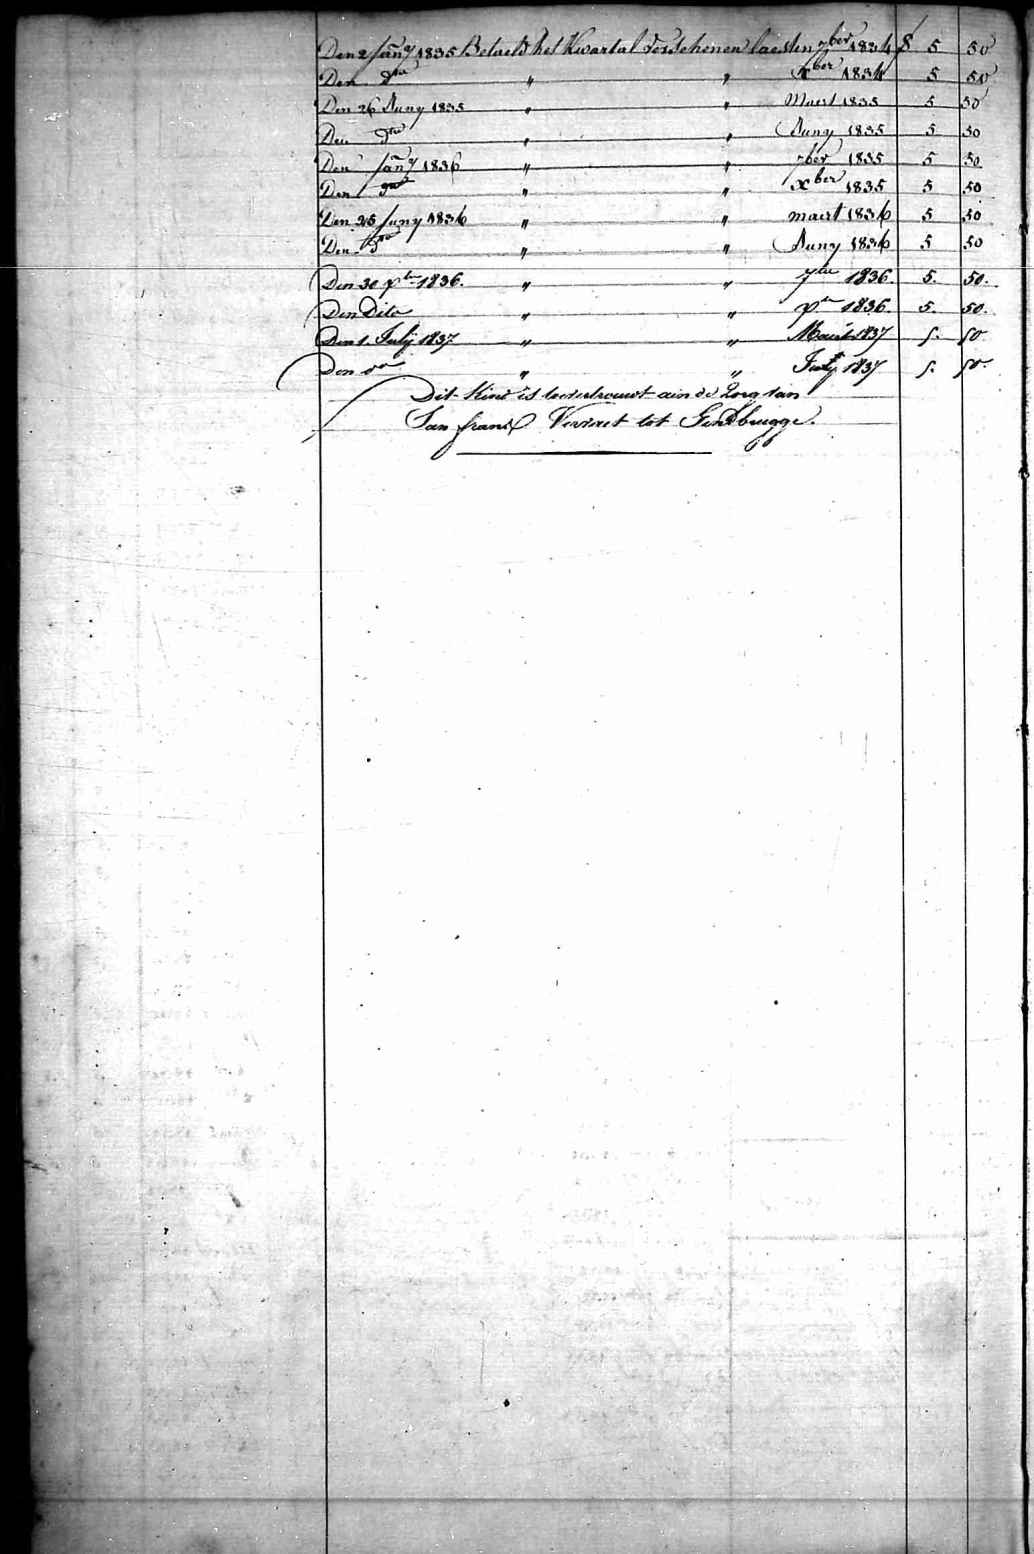 Den 2 Jany 1835 Betaeld het Kwartal verschenen laesten 7ber 1834 f 5 50
Den dto " " Xber 1834 5 50
Den 26 Juny 1835 " " Maert 1835 5 50
Den dto " " Juny 1835 5 50
Den Jany 1836 " " 7ber 1835 5 50
Den dto " " Xber 1835 5 50
Den 25 Juny 1836 " " maert 1836 5 50
Den dto " " Juny 1836 5 50
Den 30 Xber 1836. " " 7ber 1836. 5. 50.
Den Dito " " Xber 1836. 5. 50.
Den 1. July 1837 " " Maert 1837 5. 50
Den do " " July 1837 5. 50
Dit Kind is toevertrouwt aan de Zorg van
Jan frans Vervaet tot Gendbrugge.